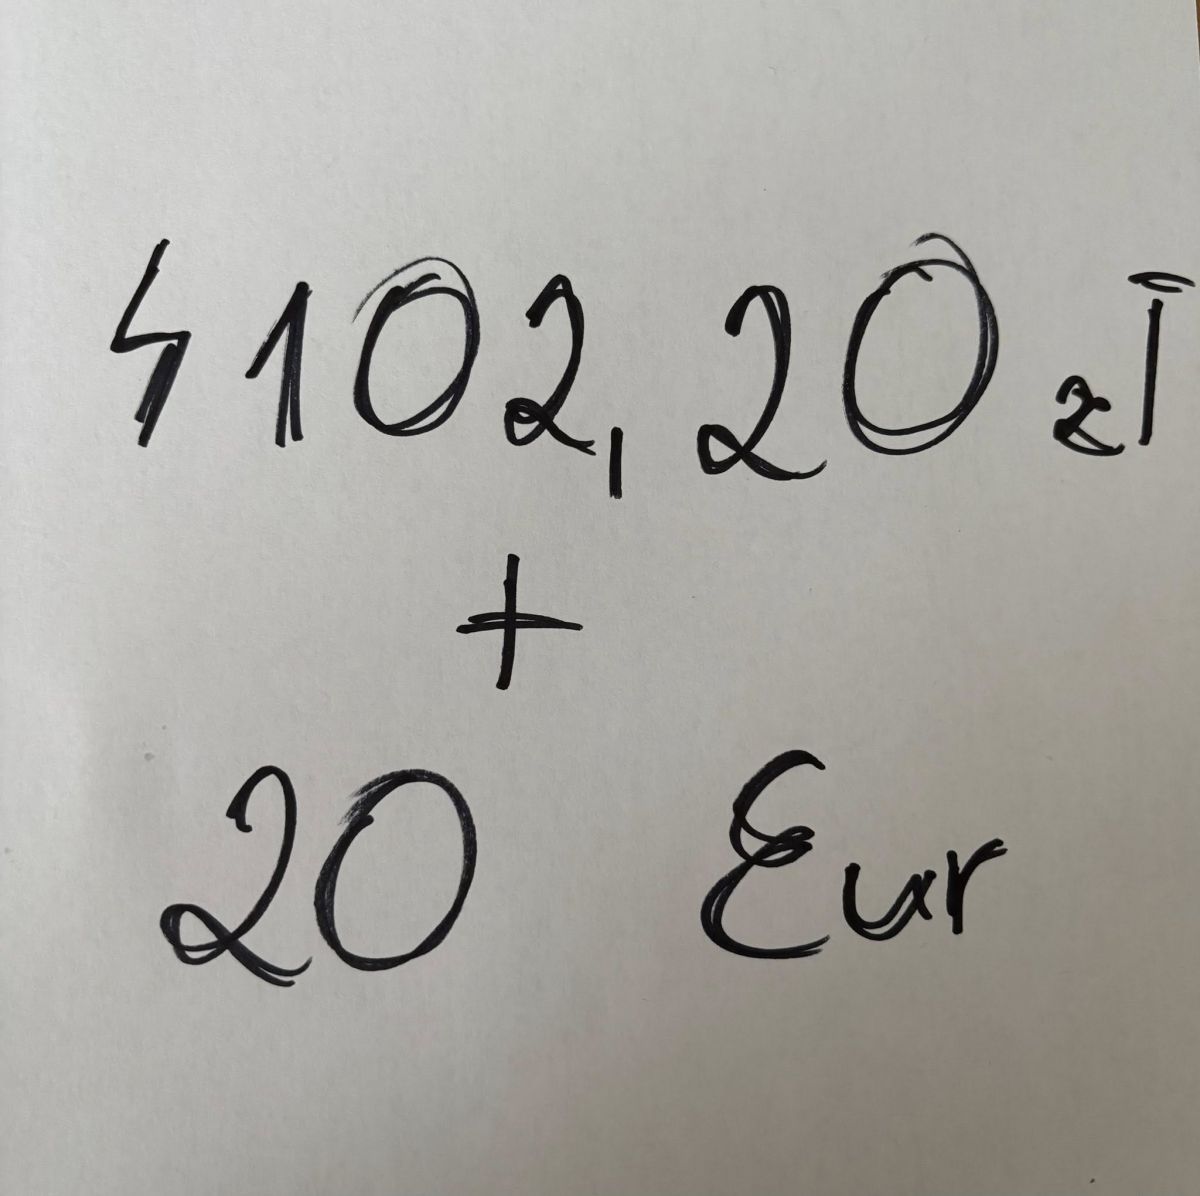 4102,20 zł
+
20 Eur